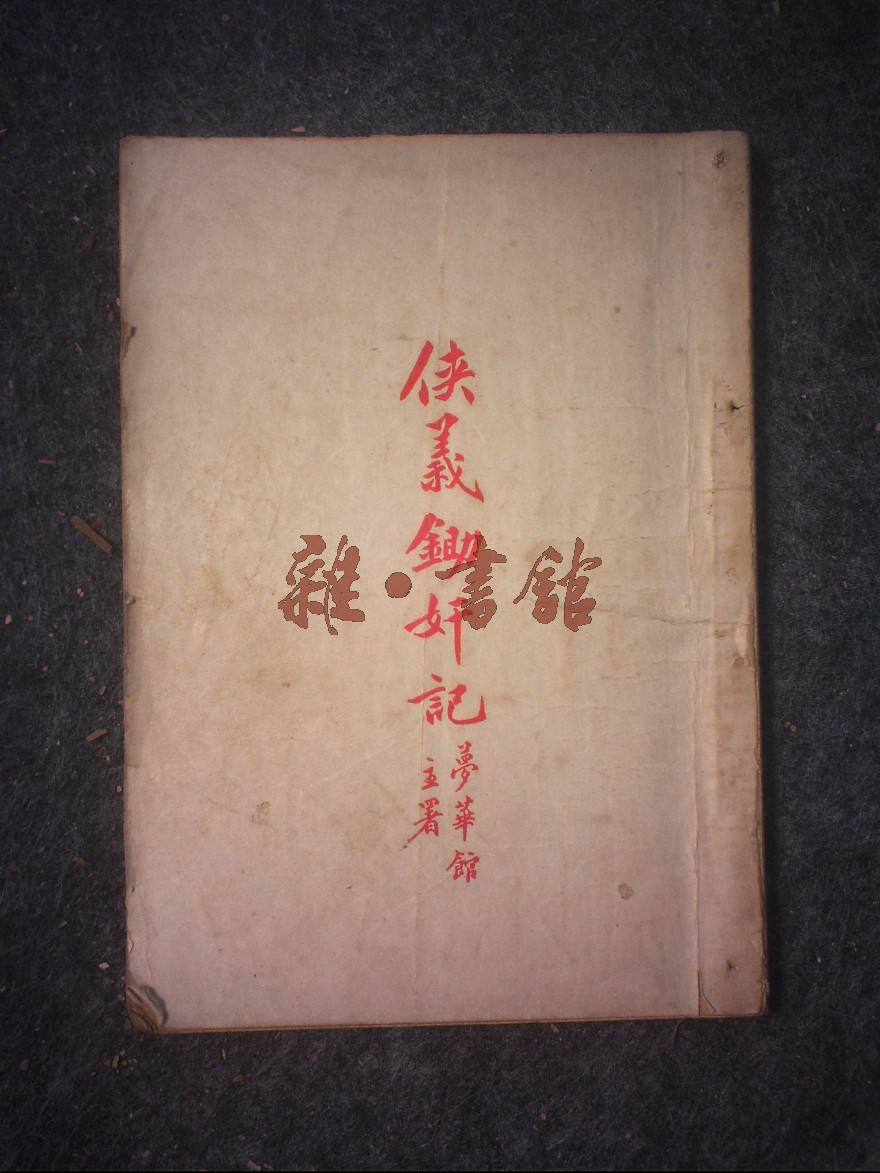 侠義鋤奸記
夢華館
主署
雜·書館